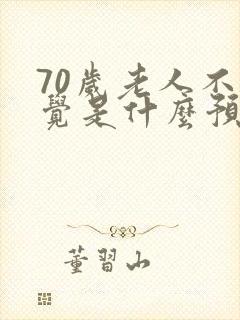 70歲老人不
覺是什麼預
董習山